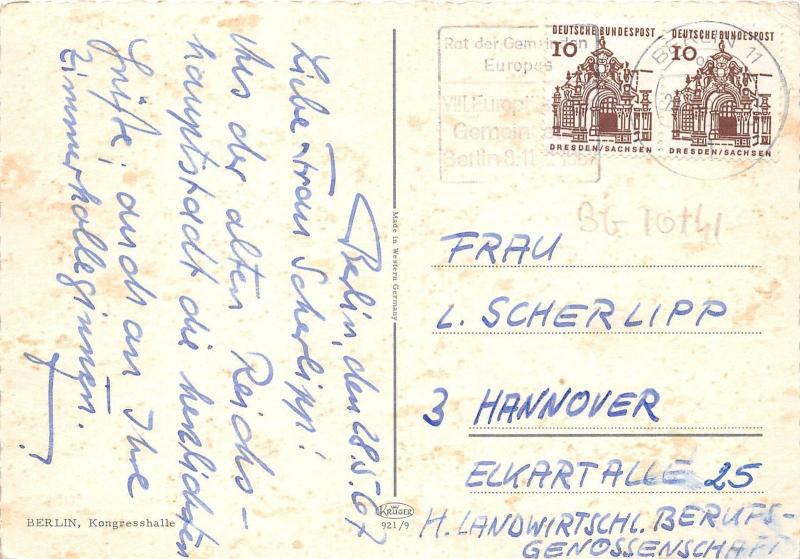 Berlin, den 28.5.67
Liebe Frau Scherlipp!
Aus der alten Reichs-
hauptstadt die herzlichsten
Grüße, auch an Ihre
Zimmerkolleginnen.
BERLIN, Kongresshalle
Made in Western Germany
KRÜGER
921/9
Rat der Gemeinden
Europas
VIII. Europ
Gemeind
Berlin 8.11
DEUTSCHE BUNDESPOST
10
DRESDEN/SACHSEN
DEUTSCHE BUNDESPOST
10
DRESDEN/SACHSEN
BERLIN 11
BG 10141
FRAU
L. SCHERLIPP
3 HANNOVER
ECKARTALLE 25
H. LANDWIRTSCHL. BERUFS-
GENOSSENSCHAFT